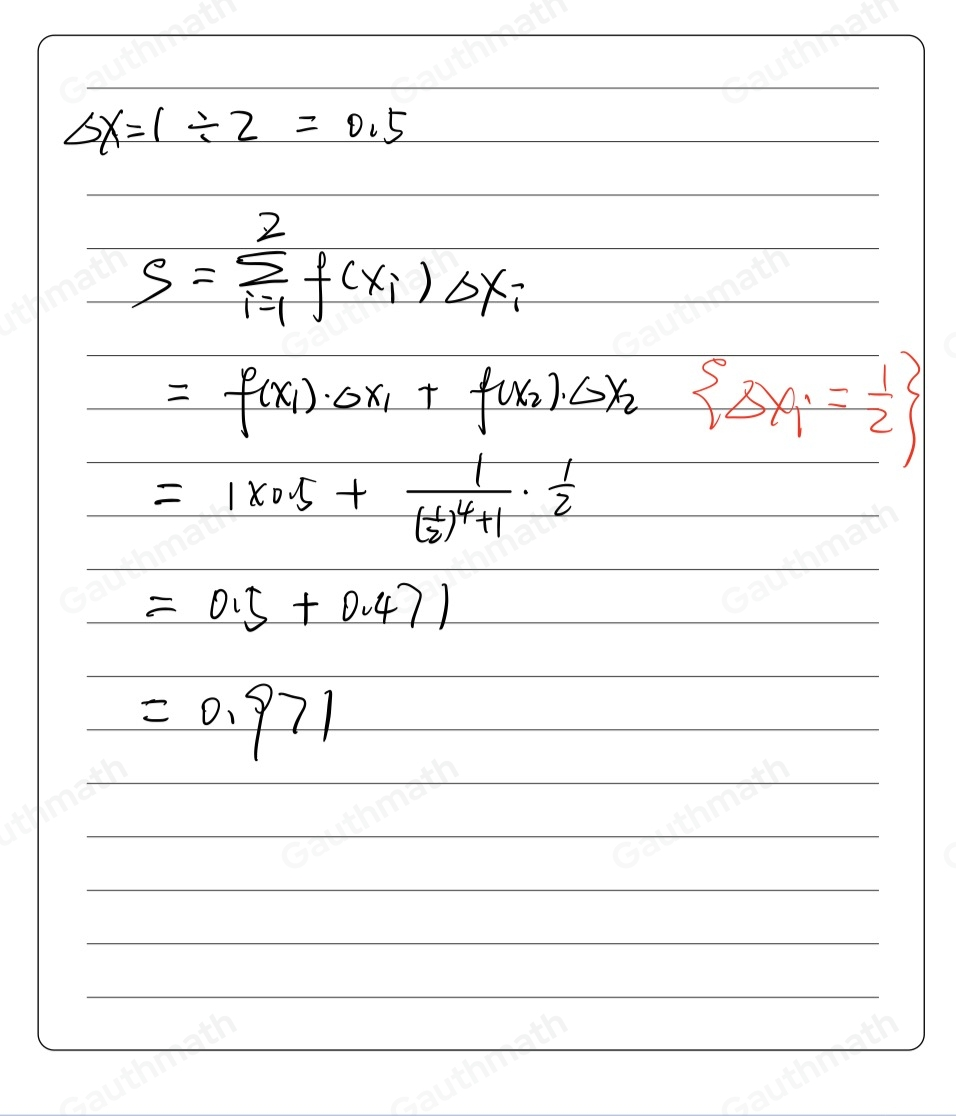 Δx=1 ÷ 2 = 0.5
S = \sum_{i=1}^{2} f(x_i) Δx_i
= f(x_1)·Δx_1 + f(x_2)·Δx_2 {Δx_i = \frac{1}{2}}
= 1×0.5 + \frac{1}{(\frac{1}{2})^4+1} · \frac{1}{2}
= 0.5 + 0.471
= 0.971
Gauthmath